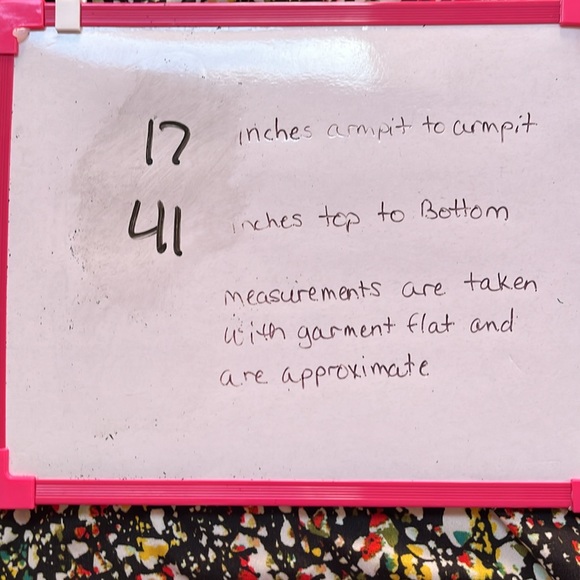 17 inches armpit to armpit
41 inches top to Bottom
measurements are taken
with garment flat and
are approximate